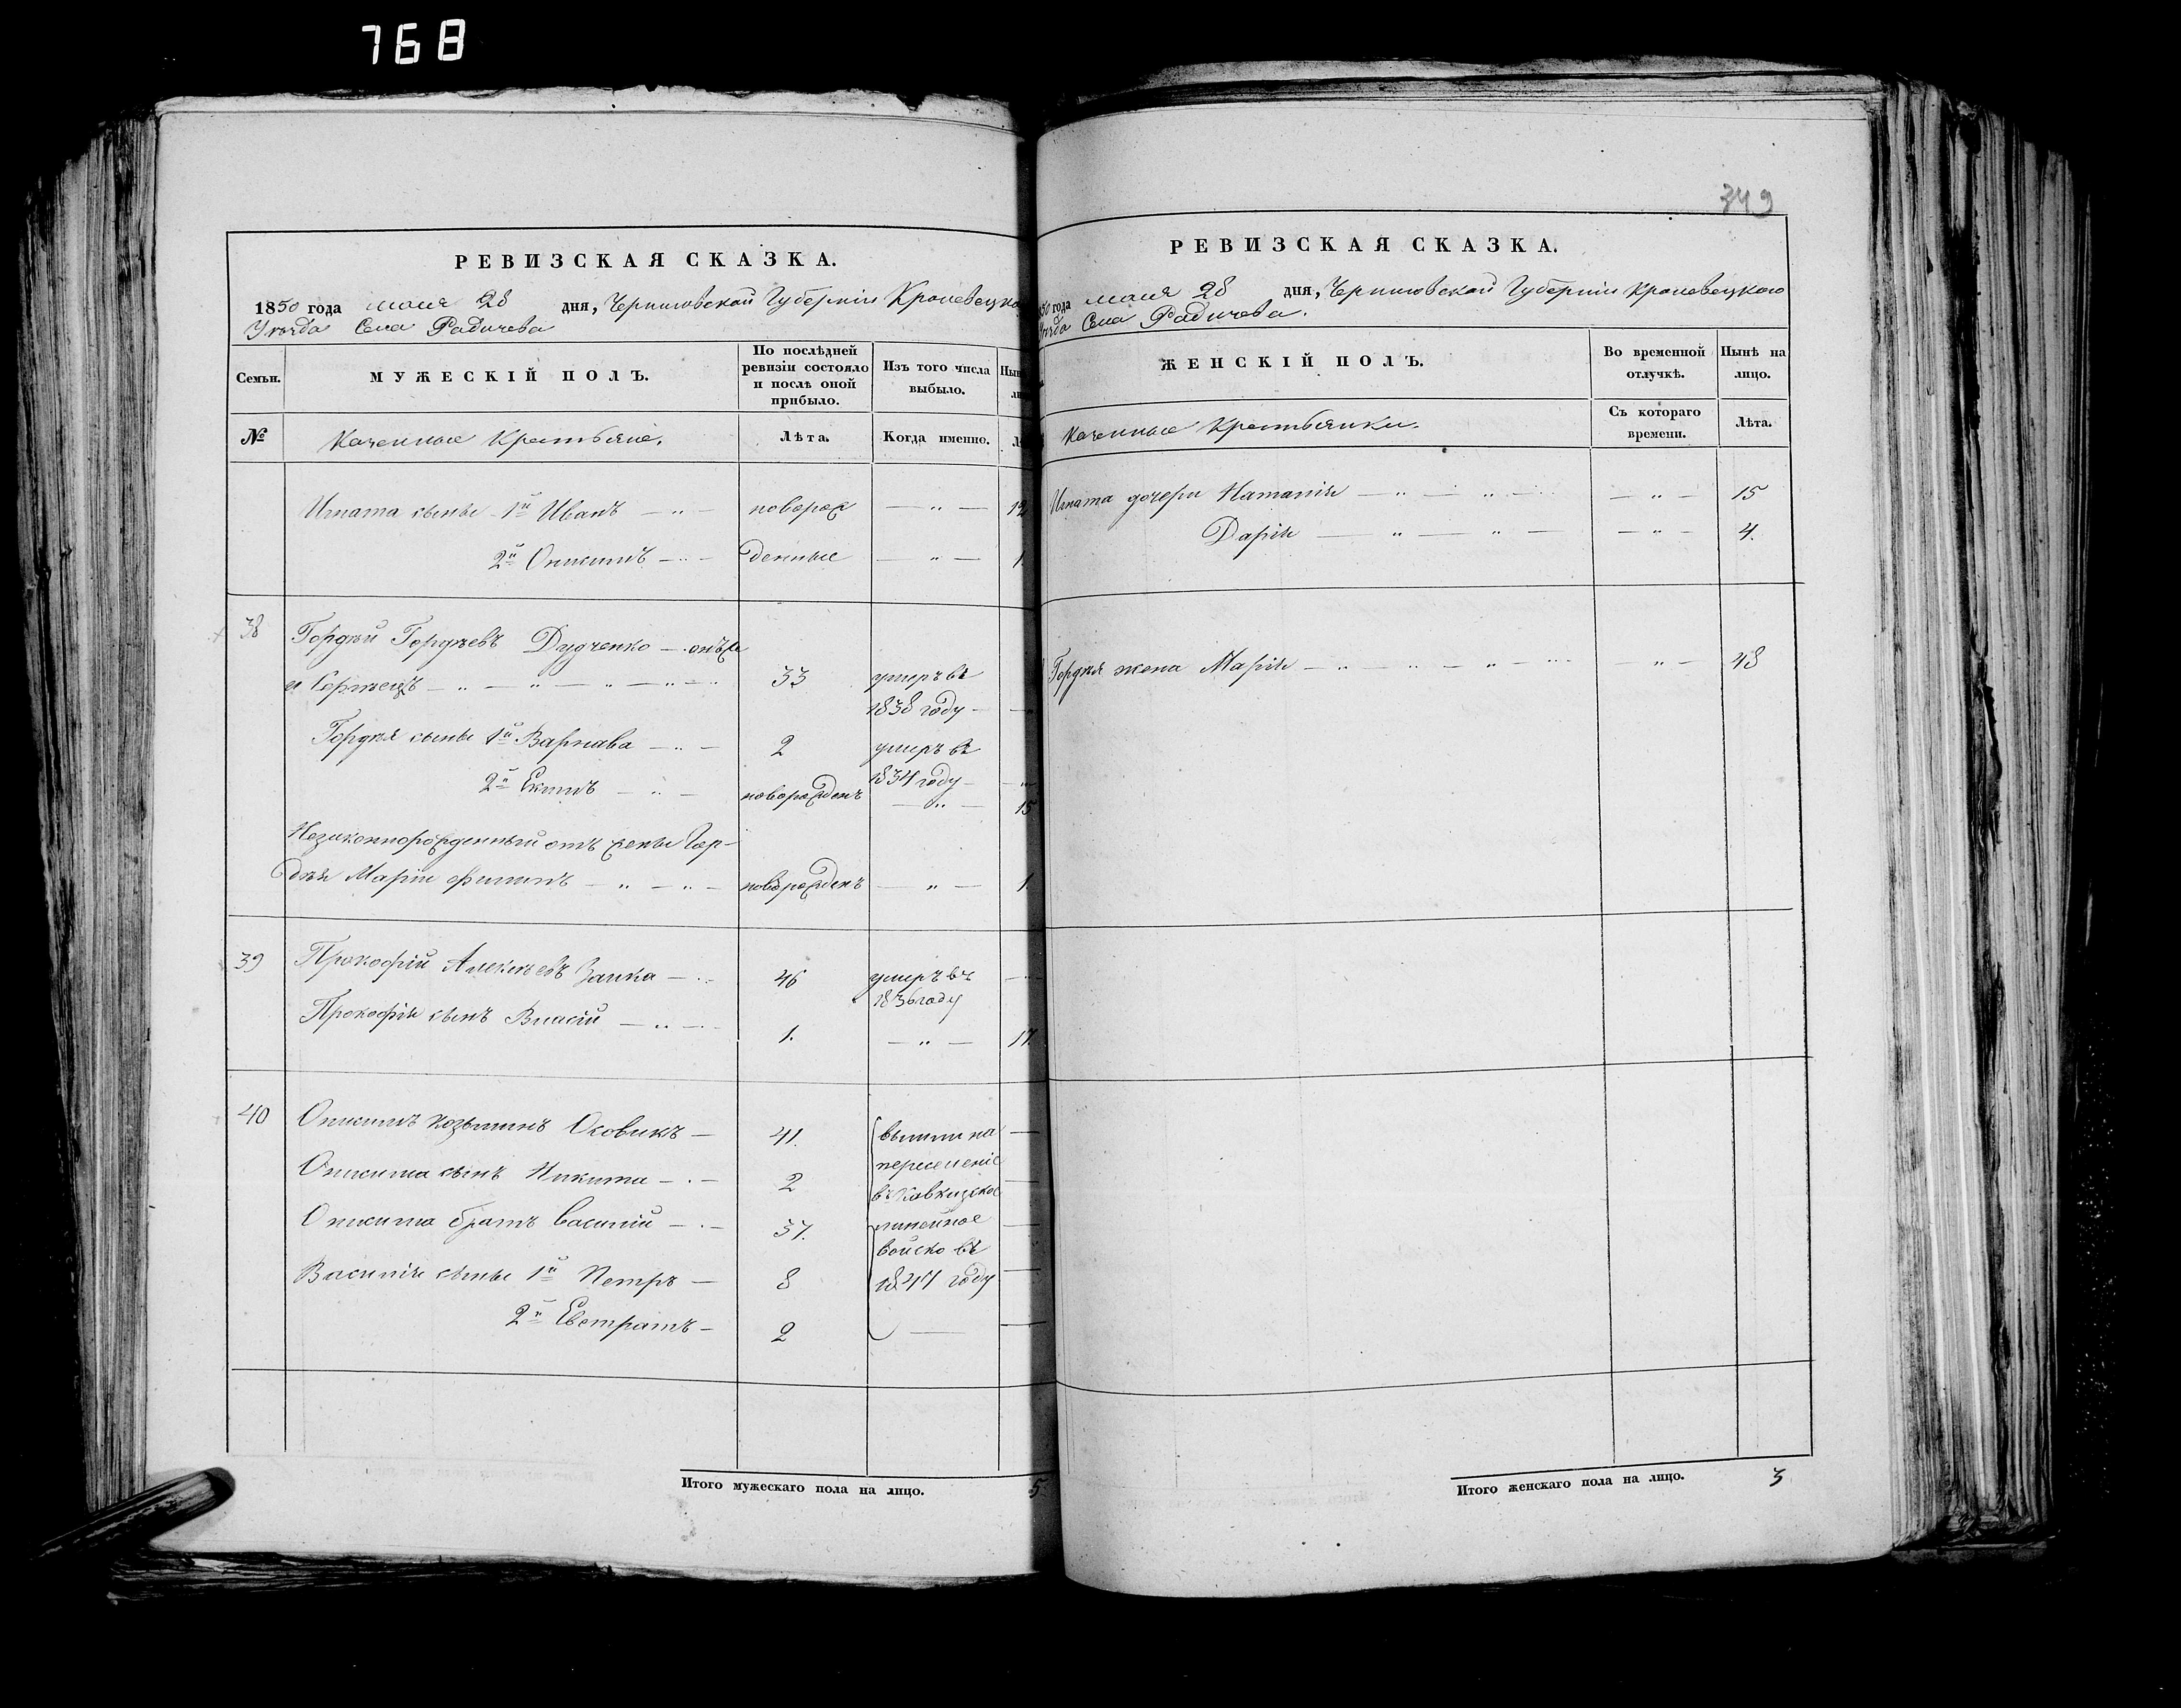 768
РЕВИЗСКАЯ СКАЗКА.
1850 года маия 28 дня, Черниговской Губерніи Кролевецко
Уѣзда Села Радичева
Семьи. МУЖЕСКІЙ ПОЛЪ. По послѣдней ревизіи состояло и послѣ оной прибыло. Изъ того числа выбыло.
№ Казенные Крестьяне. Лѣта. Когда именно.
Игната сыны 1й Иванъ — „ — новорож — „ — 12
2й Онисимъ — „ — денные — „ — 1
38 Гордѣй Гордѣевъ Дудченко — онъ же
и Сергѣецъ — „ — „ — „ — „ — 33 умеръ въ
1838 году —
Гордѣя сыны 1й Варнава — „ — 2 умеръ въ
1834 году —
2й Екимъ — „ — новорожденъ — „ — 15
Незаконнорожденный отъ жены Гор-
дѣя Маріи Филипъ — „ — „ — новорожденъ — „ — 1.
39 Прокофій Алексѣевъ Заика — „ 46 умеръ въ
1836 году
Прокофія сынъ Власій — „ — 1. — „ — 17.
40 Онисимъ Козьминъ Осовикъ — 41. вышли на
переселеніе
Онисима сынъ Никита — „ — 2 въ Кавказское
Онисима братъ Василій — „ — 37. линейное
войско въ
Василія сыны 1й Петръ — 8 1847 году
2й Евстратъ — 2
Итого мужескаго пола на лицо. 5
349
РЕВИЗСКАЯ СКАЗКА.
50 года маия 28 дня, Черниговской Губерніи Кролевецкого
Уѣзда Села Радичева.
ЖЕНСКІЙ ПОЛЪ. Во временной отлучкѣ. Нынѣ на лицо.
Казенные Крестьянки. Съ котораго времени. Лѣта.
Игната дочери Наталія — „ — „ — — „ — 15
Дарія — „ — „ — — „ — 4.
Гордѣя жена Марія — „ — „ — „ — — „ — 48
Итого женскаго пола на лицо. 3